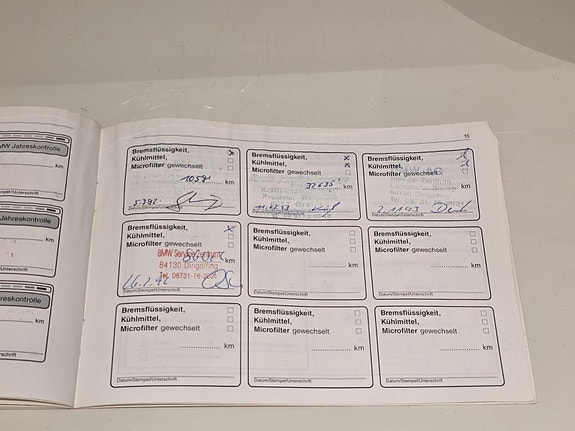 15
MW Jahreskontrolle
km
Stempel/Unterschrift
Jahreskontrolle
km
Unterschrift
reskontrolle
km
Unterschrift
Bremsflüssigkeit,
Kühlmittel,
Microfilter gewechselt
km
Datum/Stempel/Unterschrift
Bremsflüssigkeit,
Kühlmittel,
Microfilter gewechselt
32635 km
Datum/Stempel/Unterschrift
Bremsflüssigkeit,
Kühlmittel,
Microfilter gewechselt
km
Datum/Stempel/Unterschrift
Bremsflüssigkeit,
Kühlmittel,
Microfilter gewechselt
km
BMW Service Zentrum
84130 Dingolfing
Tel. 08731-76-
Datum/Stempel/Unterschrift
Bremsflüssigkeit,
Kühlmittel,
Microfilter gewechselt
km
Datum/Stempel/Unterschrift
Bremsflüssigkeit,
Kühlmittel,
Microfilter gewechselt
km
Datum/Stempel/Unterschrift
Bremsflüssigkeit,
Kühlmittel,
Microfilter gewechselt
km
Datum/Stempel/Unterschrift
Bremsflüssigkeit,
Kühlmittel,
Microfilter gewechselt
km
Datum/Stempel/Unterschrift
Bremsflüssigkeit,
Kühlmittel,
Microfilter gewechselt
km
Datum/Stempel/Unterschrift